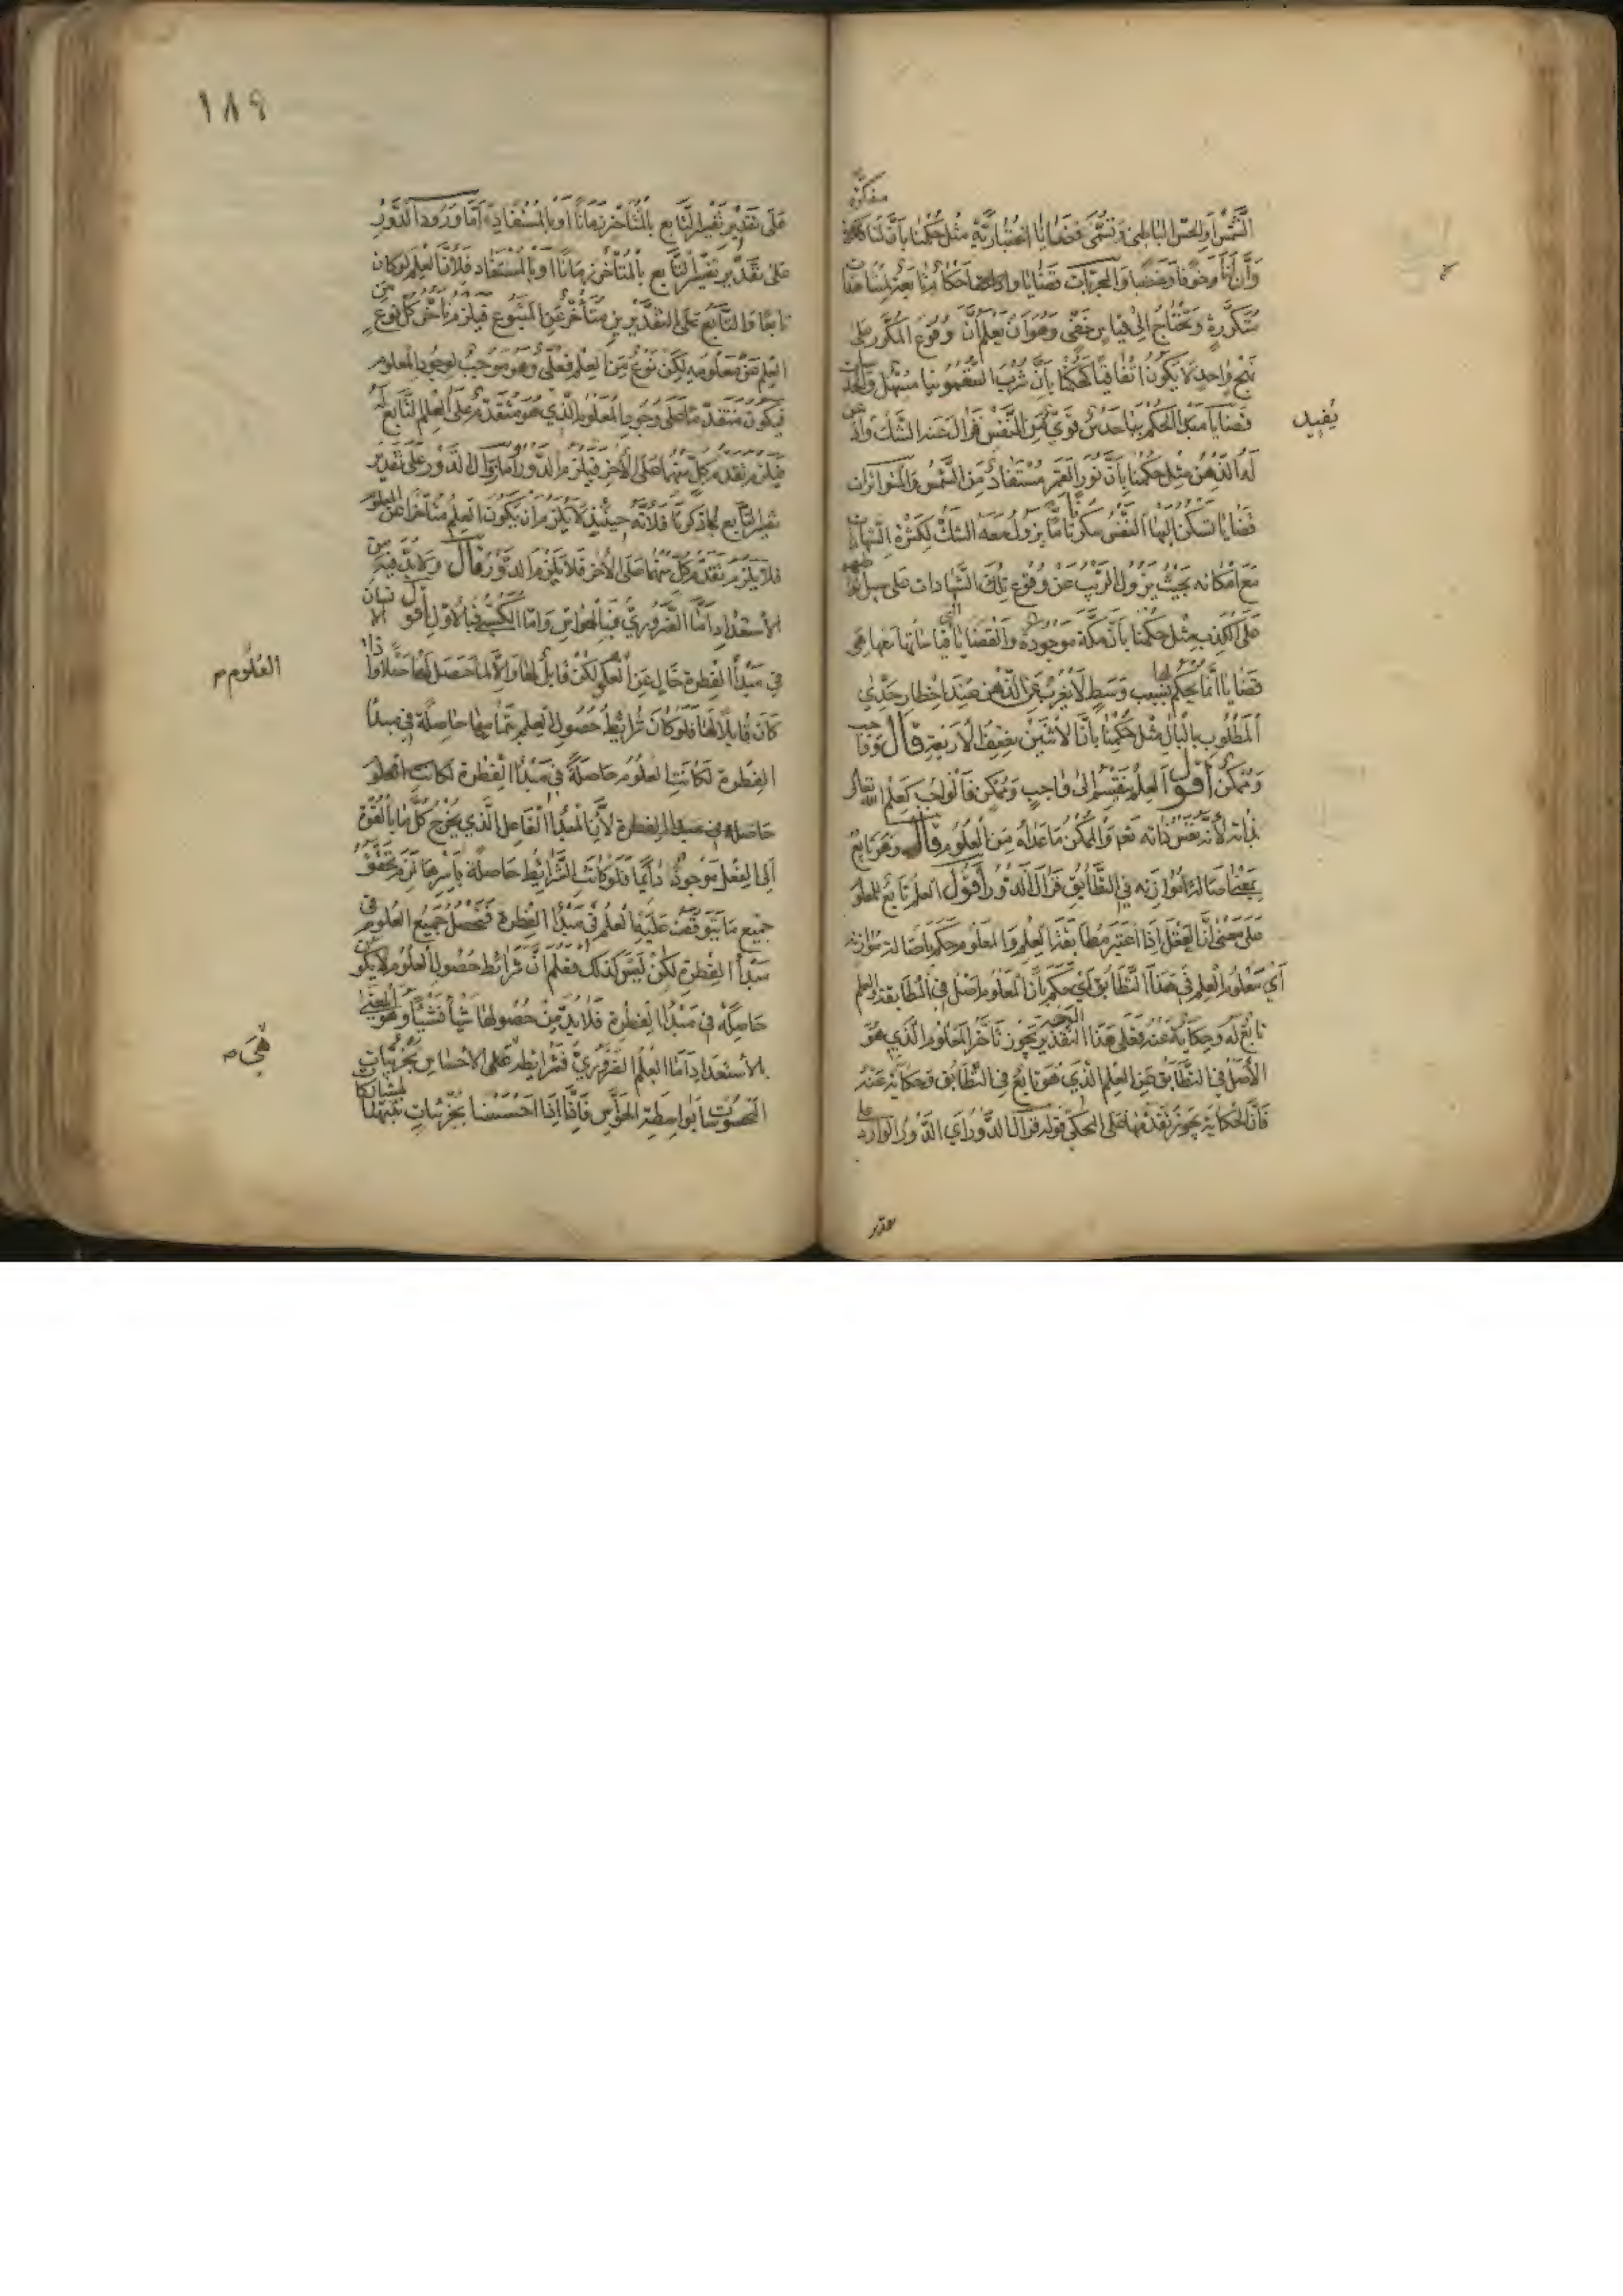 مفكرة
الشمس أو الحس الباطن وتسمى قضايا اعتبارية مثل حكمنا بأن لنا
وأن لنا وخوفا وغضبا والمجربات قضايا وأحكام تابعة لمشاهدات
متكررة وتحتاج إلى قياس خفي وهو أن تعلم أن وقوع المكرر على
نهج واحد لا يكون اتفاقيا كحكمنا بأن شرب السقمونيا مسهل والحدسيات
قضايا مبدأ الحكم بها حدس قوي من النفس يزال عنه الشك
يفيد
له الذهن مثل حكمنا بأن نور القمر مستفاد من الشمس والمتواترات
قضايا تسكن إليها النفس سكونا تاما يزول معه الشك لكثرة الشهادات
مع امكانه بحيث يزول الريب عن وقوع تلك الشهادات على سبيل
على الكذب مثل حكمنا بأن مكة موجودة والقضايا التي قياساتها معها هي
قضايا انما يحكم بها بسبب وسط لا يعزب عن الذهن عند اخطار حدي
المطلوب بالبال مثل حكمنا بأن الاثنين نصف الأربعة قال وواجب
وممكن أقول العلم ينقسم إلى واجب وممكن فالواجب كعلم الله تعالى
بذاته لأنه نفس ذاته تعم والممكن ما عداه من العلوم قال وهو تابع
بمعنى أصالة موازنه في التطابق فزال الدور أقول العلم تابع للمعلوم
على معنى أن العقل إذا اعتبر مطابقة العلم والمعلوم حكم بأصالة موازنه
أي معلوم العلم في هذا التطابق أي حكم بأن المعلوم أصل في المطابقة والعلم
تابع له وحكاية عنه فعلى هذا التقدير يجوز تأخر المعلوم الذي هو
الأصل في التطابق عن العلم الذي هو تابع في التطابق وحكاية عنه
فان الحكاية يجوز تقدمها على المحكي قوله فزال الدور أي الدور الوارد على
١٨٩
على تقدير تفسير التابع بالمتأخر زمانا أو بالمستفاد أما ورود الدور
على تقدير تفسير التابع بالمتأخر زمانا أو بالمستفاد فلأن العلم لو كان
تابعا والتابع على التقديرين متأخر عن المتبوع فيلزم تأخر كل نوع من
العلم عن معلومه لكن نوع من العلم فعلي وهو موجب لوجود المعلوم
فيكون متقدما على وجود المعلوم الذي هو متقدم على العلم التابع له
فيلزم تقدم كل منهما على الآخر فيلزم الدور أما زوال الدور على تقدير
تفسير التابع بما ذكرنا فلأنه حينئذ لا يلزم أن يكون العلم متأخرا عن المعلوم
فلا يلزم تقدم كل منهما على الآخر فلا يلزم الدور قال ولا بد فيه من
الاستعداد أما الضروري فبالحواس وأما الكسبي فبالأول أقول الإنسان
في مبدأ الفطرة خال عن العلوم لكن قابل لها والا لما حصل لها
العلوم
كان قابلا لها فلو كان شرائط حصول العلم بتمامها حاصلة في مبدأ
الفطرة لكانت العلوم حاصلة في مبدأ الفطرة لكانت العلوم
حاصلة في مبدأ الفطرة لأن المبدأ الفاعل الذي يخرج كل ما بالقوة
إلى الفعل موجود دائما فلو كانت الشرائط حاصلة بأسرها لزم تحقق
جميع ما يتوقف عليه العلم في مبدأ الفطرة فتحصل جميع العلوم في
مبدأ الفطرة لكن ليس كذلك فعلم أن شرائط حصول العلوم لا يكون
حاصلة في مبدأ الفطرة فلا بد من حصولها شيأ فشيأ وهو المعني
بالاستعداد أما العلم الضروري فشرائطه هي الاحساس بجزئيات
هي
المحسوسات بواسطة الحواس فإنا إذا أحسسنا بجزئيات
عدير